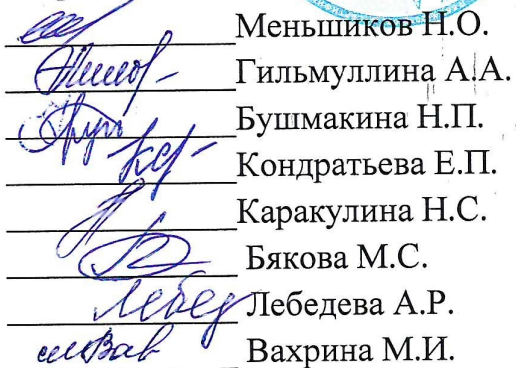 Меньшиков Н.О.
Гильмуллина А.А.
Бушмакина Н.П.
Кондратьева Е.П.
Каракулина Н.С.
Бякова М.С.
Лебедева А.Р.
Вахрина М.И.